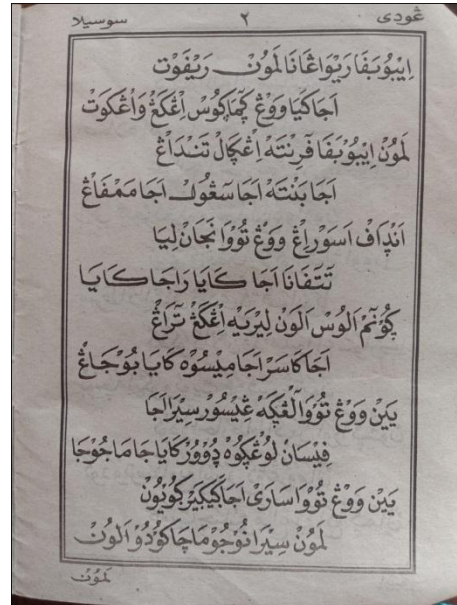 ڠودى ٢ سوسيلا
اِيبُوْبَفَا رَيْوَاڠَانَا لَمُوْن رَيْفَوْت
اَجَاكَيَا وَوْڠ ڮٓمَاڮُوْس اِڠْكَڠْ وَاڠْكَوْت
لَمُوْن اِيبُوْبَفَا فٓرِنْتَهْ اِڠْڮَالْ تَنْدَاڠْ
اَجَا بَنْتَهْ اَجَا سَڠْڮُوكْ اَجَا مَمْفَاڠْ
اَنْدٓافْ اَسَوْر اِڠْ وَوْڠْ تُوْوَا نَجَانْ لِيَا
تٓتٓفَانَا اَجَا كَايَا رَاجَا كَايَا
ڮُوْنٓمْ اَلُوْس اَلَوْن لِيْرِيهْ اِڠْكَڠْ تٓرَاڠْ
اَجَاكَاسَرْ اَجَا مِيْسُوْه كَايَا بُوْجَاڠْ
يَيْن وَوْڠْ تُوْوَا لٓڠْڮَهْ ڠِيْسَوْر سِيْرَا اَجَا
فِيْسَانْ لُوْڠْڮُوْه دُوْوُرْ كَايَا جَامَاجُوْجَا
يَيْن وَوْڠْ تُوْوَا سَارَىْ اَجَاڮَيْڮَيْر ڮُوْيَوْن
لَمُوْن سِيْرَا نُوْجُوْ مَاچَا كُوْدُوْ اَلَوْنْ
لَمُوْن